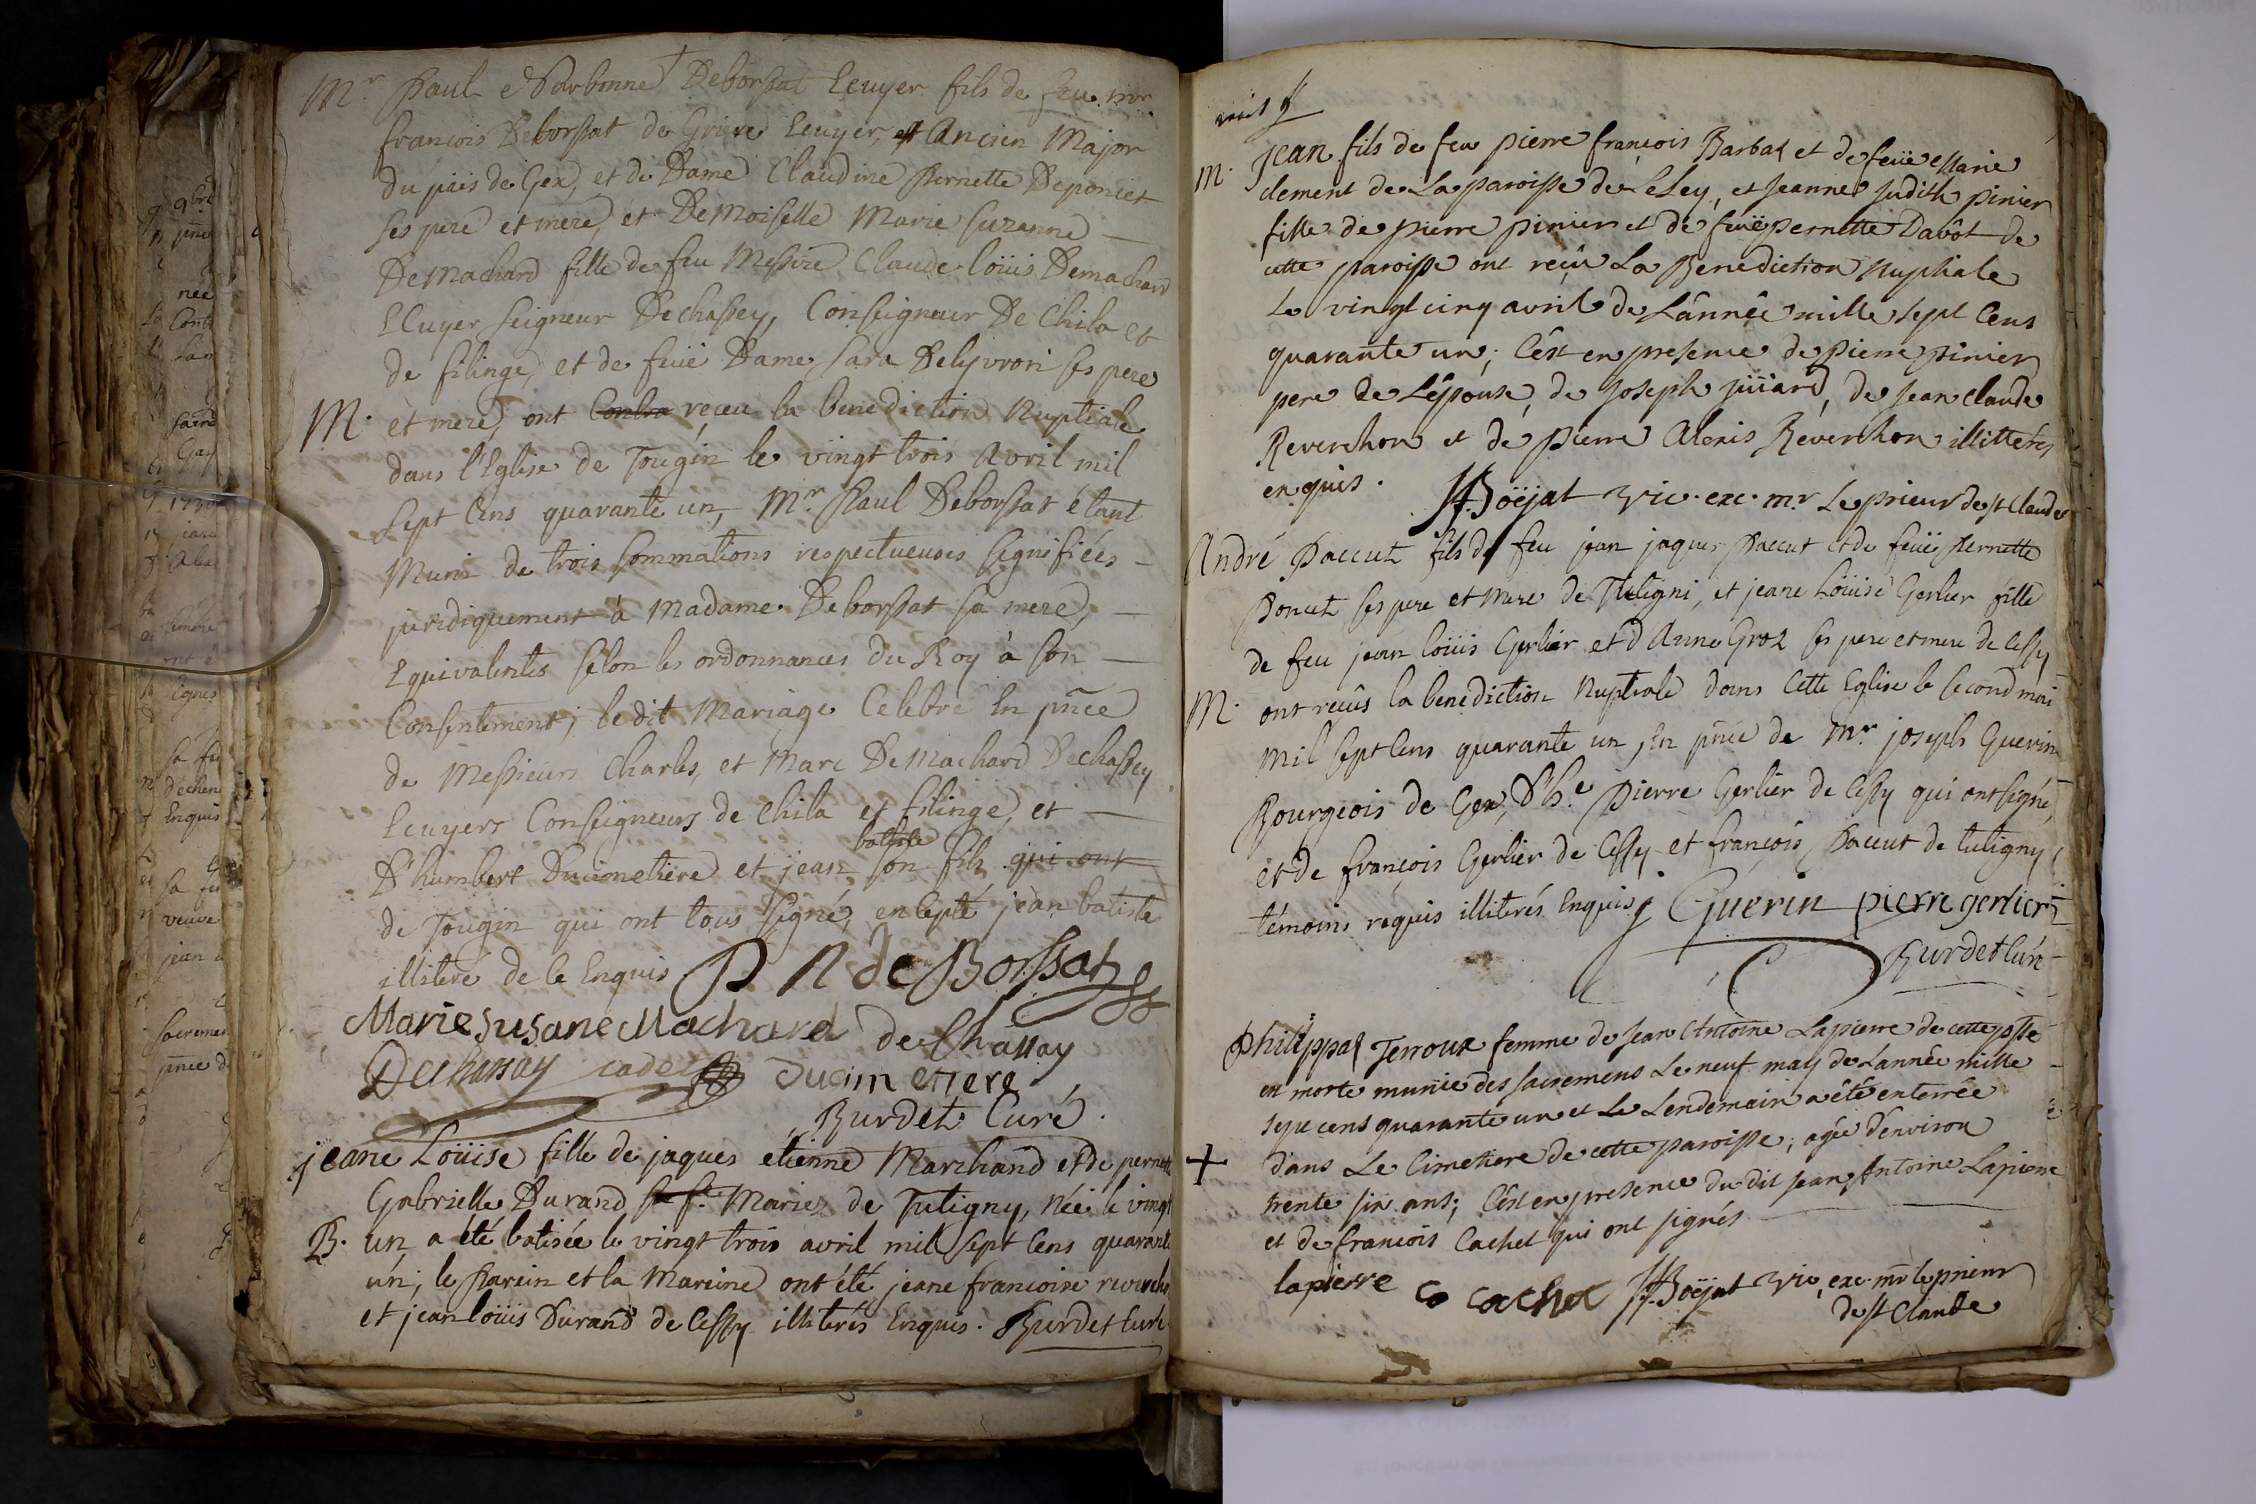 Mr Paul Narbonne Deborssat Ecuyer fils de feu mr
francois Deborssat de Grive Ecuyer, et Ancien Major
du päis de Gex, et de Dame Claudine Pernette Deponcet
ses pere et mere, et Demoiselle Marie Suzanne
Demachard fille de feu Messire Claude loüis Demachard
Ecuyer seigneur Dechassey, Conseigneur De Chila et
de filinge, et de feüe Dame Sara Delyvron ses pere
M. et mere, ont Contra receu la benediction Nuptiale
dans l'Eglise de Tougin le vingt trois Avril mil
sept Cens quarante un, Mr. Paul Deborssat étant
Muni de trois sommations respectueuses signifiées
juridiquement à Madame Deborssat sa mere,
Equivalentes selon les ordonnances du Roy à son
Consentement; ledit Mariage Celebré En pñce
de Messieurs Charles, et Marc De Machard Dechassey
Ecuyers Conseigneurs de Chila et filinge, et
batiste
D'humbert Ducimetiere et jean son fils qui ont
de Tougin qui ont tous signé, excepté jean batiste
illiteré de ce Enquis P N de Borssat
Marie susane Machard de Chassay
DeChassay cadet Ducimetiere
Burdet Curé.
jeane Loüise fille de jaques étienne Marchand et de pernette
Gabrielle Durand sa f. Mariez de Tutigny, Née le vingt
B. un a été batisée le vingt trois avril mil sept Cens quarante
un; le Parein et la Mareine ont été jeane francoise
et jean loüis Durand de Cessy illiterés Enquis. Burdet Curé
M. Jean fils de feu pierre françois Barbat et de feüe Marie
clement de La paroisse de Leley, et Jeanne Judith pinier
fille de pierre pinier et de feüe pernette Davôt de
cette paroisse ont reçu La Benediction Nuptiale
Le vingt cinq avril de L'année mille sept Cens
quarante un; C'est en presence de pierre pinier
pere de L'épouse, de Joseph , de Jean claude
Reverchon et de pierre Alexis Reverchon illitterés
enquis. Boëjat vic. exc. mr Le prieur de st Claude
André Paccut fils de feu jean jaques Paccut et de feüe Pernette
Poncet ses pere et mere de Tutigni, et jeane Loüise Gerlier fille
de feu jean loüis Gerlier et d'Anne Groz ses pere et mere de Cessy
M. ont reçûs la benediction Nuptiale dans Cette Eglise le second mai
Mil sept Cens quarante un, En pñce de Mr joseph Guerin
Bourgeois de Gex, d'he. Pierre Gerlier de Cessy qui ont signé,
et de françois Gerlier de Cessy et françois Paccut de tutigny
témoins requis illiterés Enquis Guerin pierre gerlier
Burdet Curé
Philippaz Terroux femme de Jean Antoine Lapierre de cette posse
est morte munie des sacremens Le neuf may de L'année mille
sept cens quarante un et Le Lendemain a été enterrée
+ dans Le Cimetiere de cette paroisse; agée d'environ
trente six ans; C'est en presence du dit Jean Antoine Lapierre
et de francois Cachet qui ont signés
lapierre cachet Boëjat vic. exc. mr le prieur
de st Claude